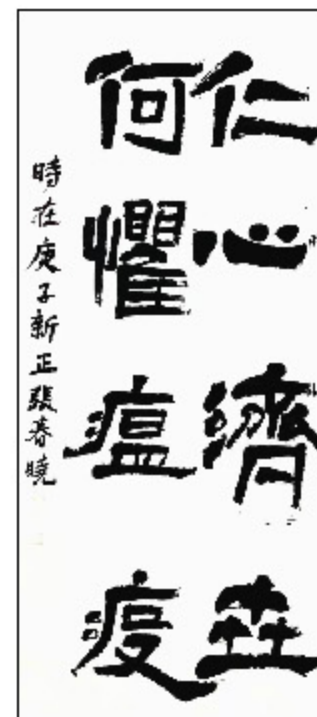 仁心濟世
何懼瘟疫
時在庚子新正張春曉